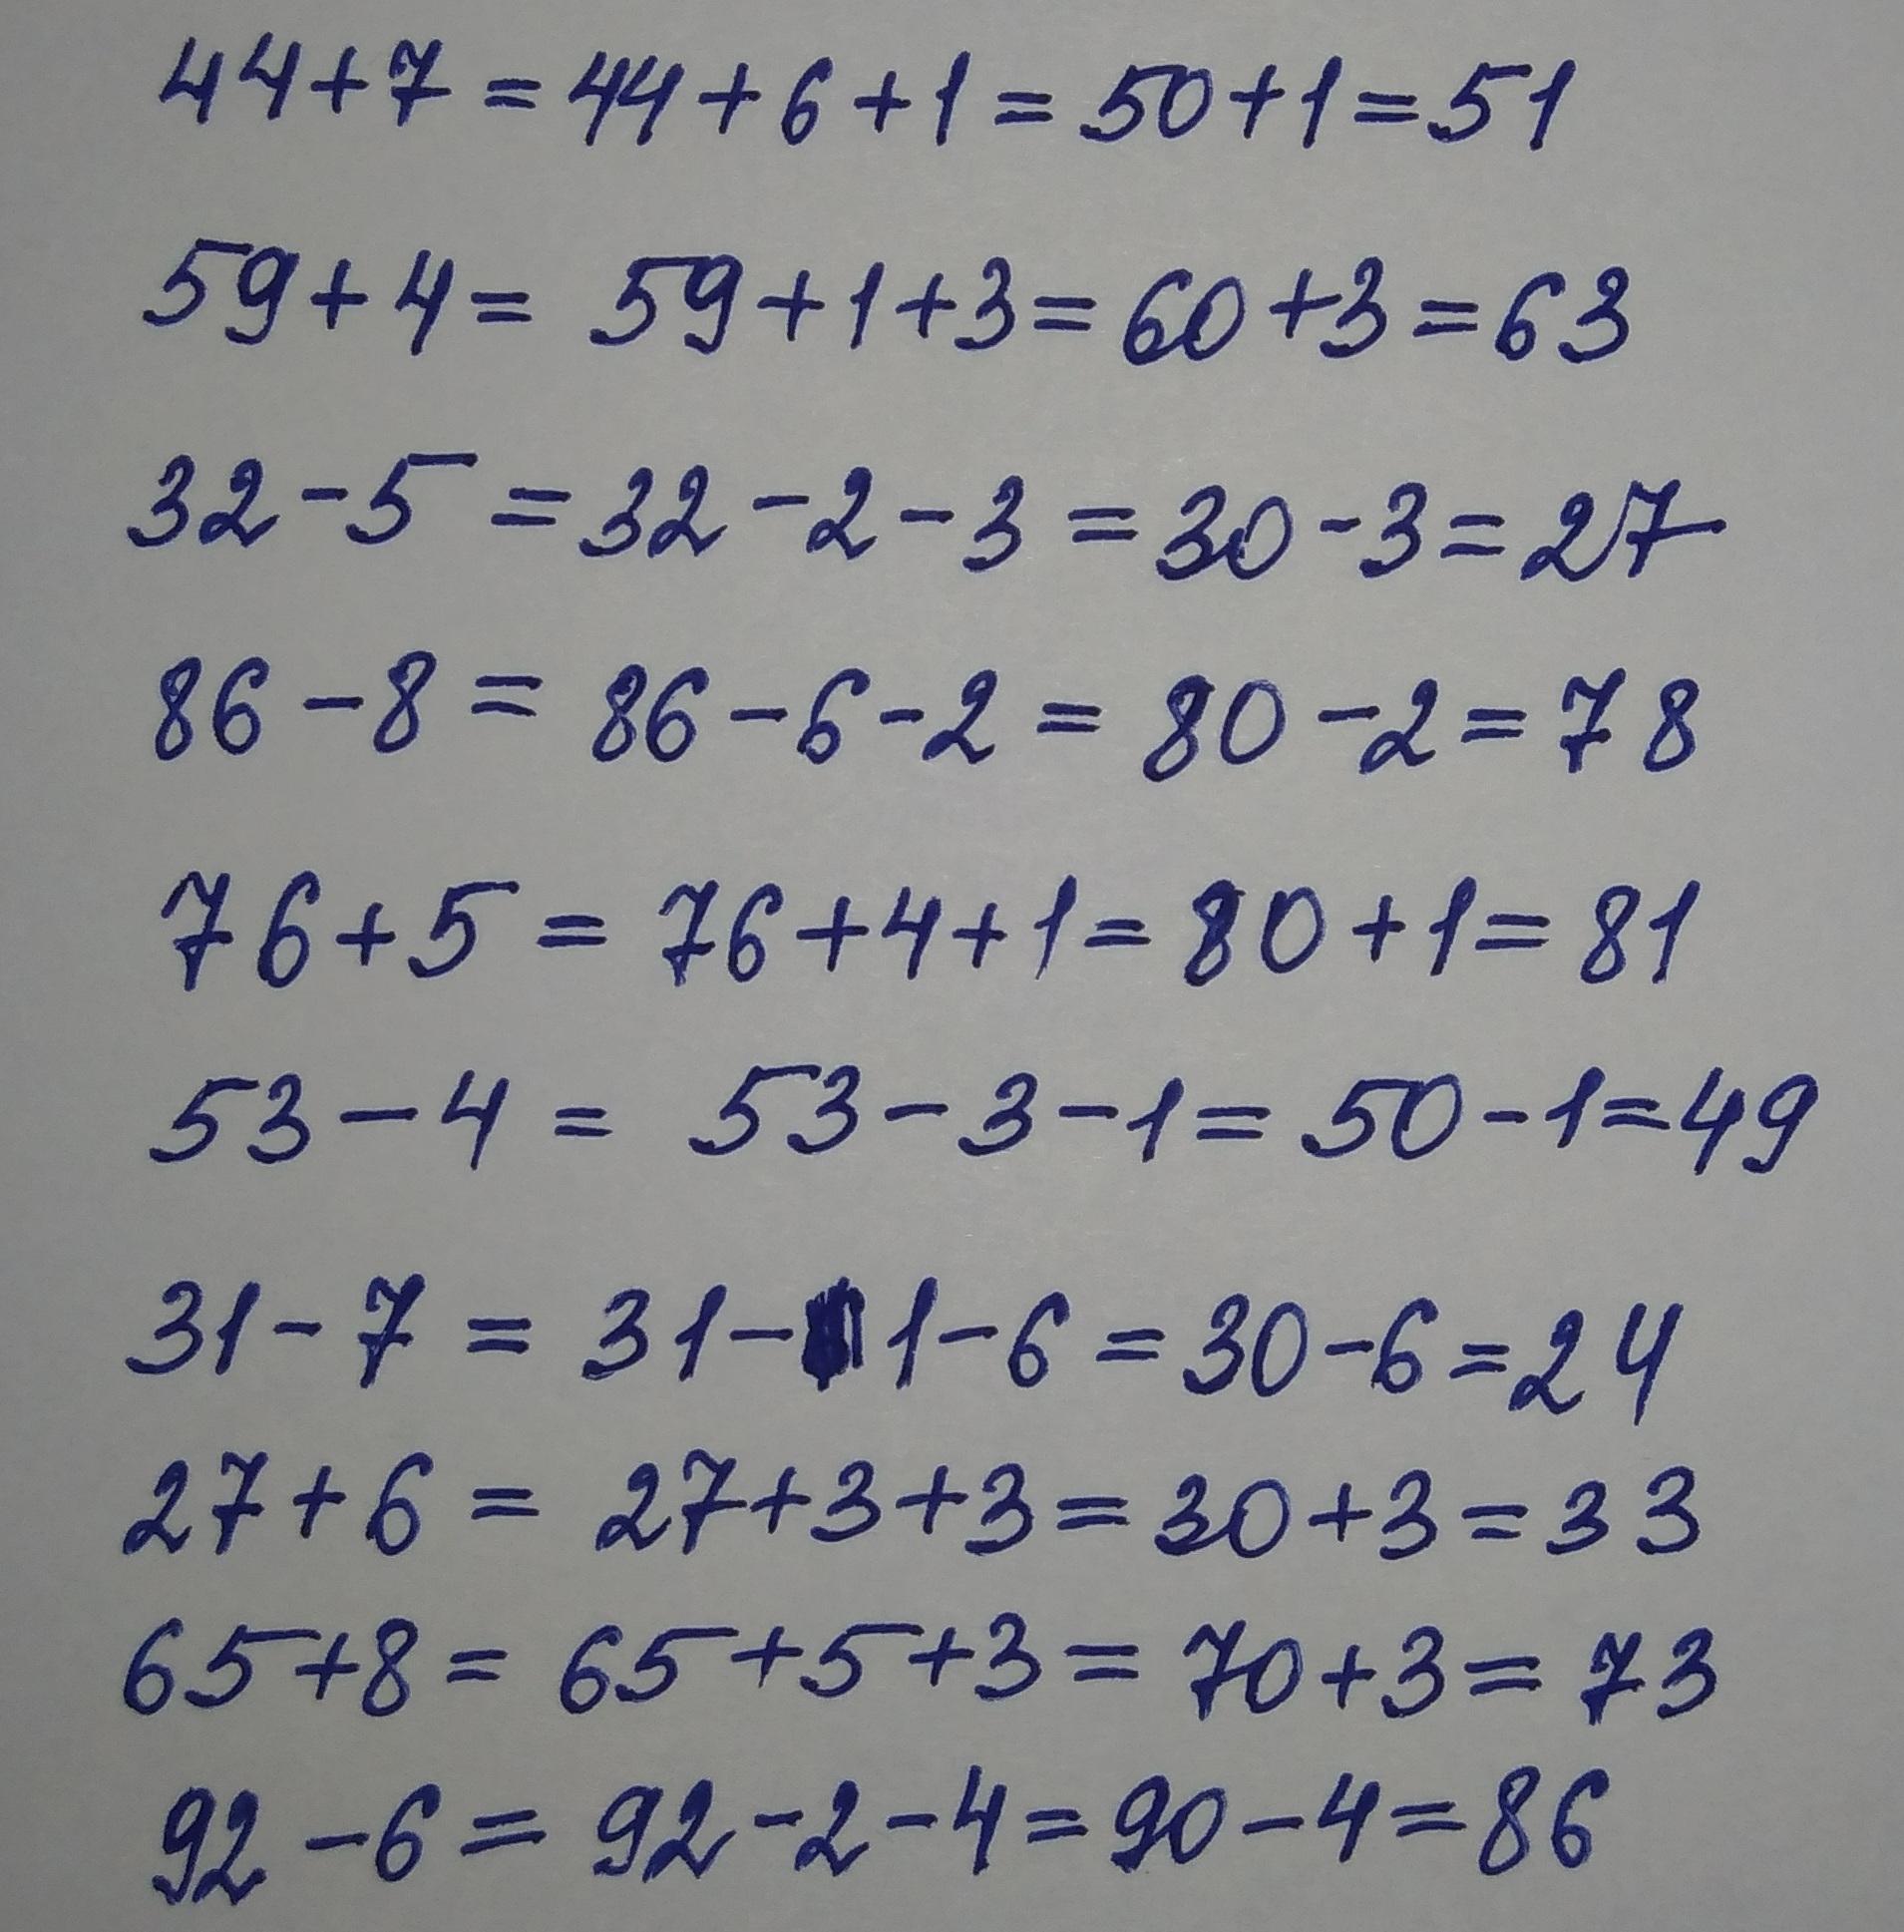 44+7=44+6+1=50+1=51
59+4=59+1+3=60+3=63
32-5=32-2-3=30-3=27
86-8=86-6-2=80-2=78
76+5=76+4+1=80+1=81
53-4=53-3-1=50-1=49
31-7=31-1-6=30-6=24
27+6=27+3+3=30+3=33
65+8=65+5+3=70+3=73
92-6=92-2-4=90-4=86